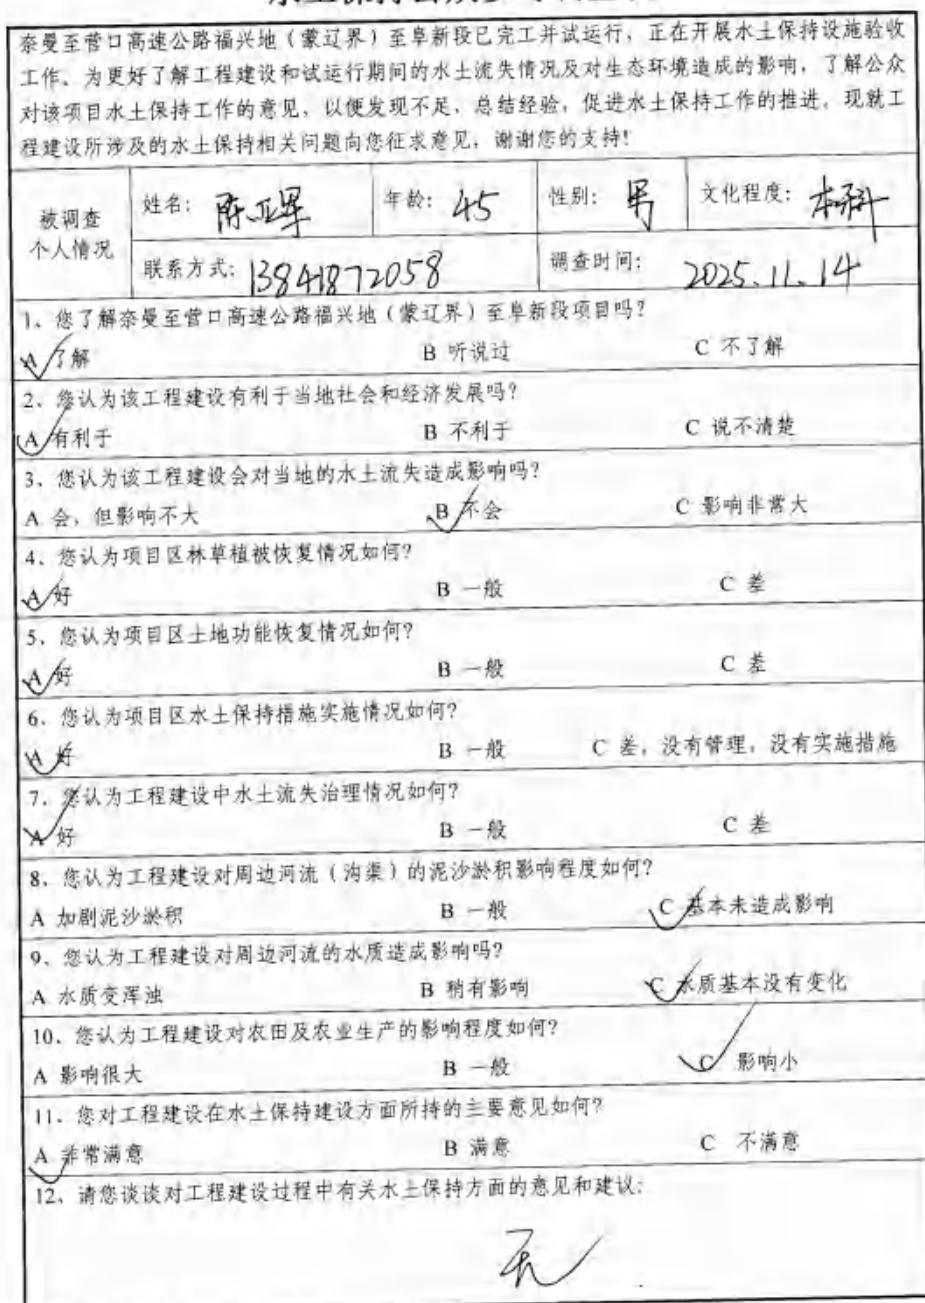 奈曼至营口高速公路福兴地（蒙辽界）至阜新段已完工并试运行，正在开展水土保持设施验收
工作。为更好了解工程建设和试运行期间的水土流失情况及对生态环境造成的影响，了解公众
对该项目水土保持工作的意见，以便发现不足、总结经验，促进水土保持工作的推进，现就工
程建设所涉及的水土保持相关问题向您征求意见，谢谢您的支持！
被调查
个人情况
姓名：陈亚军 年龄：45 性别：男 文化程度：本科
联系方式：13841872058 调查时间：2025.11.14
1、您了解奈曼至营口高速公路福兴地（蒙辽界）至阜新段项目吗？
A 了解 B 听说过 C 不了解
2、您认为该工程建设有利于当地社会和经济发展吗？
A 有利于 B 不利于 C 说不清楚
3、您认为该工程建设会对当地的水土流失造成影响吗？
A 会，但影响不大 B 不会 C 影响非常大
4、您认为项目区林草植被恢复情况如何？
A 好 B 一般 C 差
5、您认为项目区土地功能恢复情况如何？
A 好 B 一般 C 差
6、您认为项目区水土保持措施实施情况如何？
A 好 B 一般 C 差，没有管理，没有实施措施
7、您认为工程建设中水土流失治理情况如何？
A 好 B 一般 C 差
8、您认为工程建设对周边河流（沟渠）的泥沙淤积影响程度如何？
A 加剧泥沙淤积 B 一般 C 基本未造成影响
9、您认为工程建设对周边河流的水质造成影响吗？
A 水质变浑浊 B 稍有影响 C 水质基本没有变化
10、您认为工程建设对农田及农业生产的影响程度如何？
A 影响很大 B 一般 C 影响小
11、您对工程建设在水土保持建设方面所持的主要意见如何？
A 非常满意 B 满意 C 不满意
12、请您谈谈对工程建设过程中有关水土保持方面的意见和建议：
无